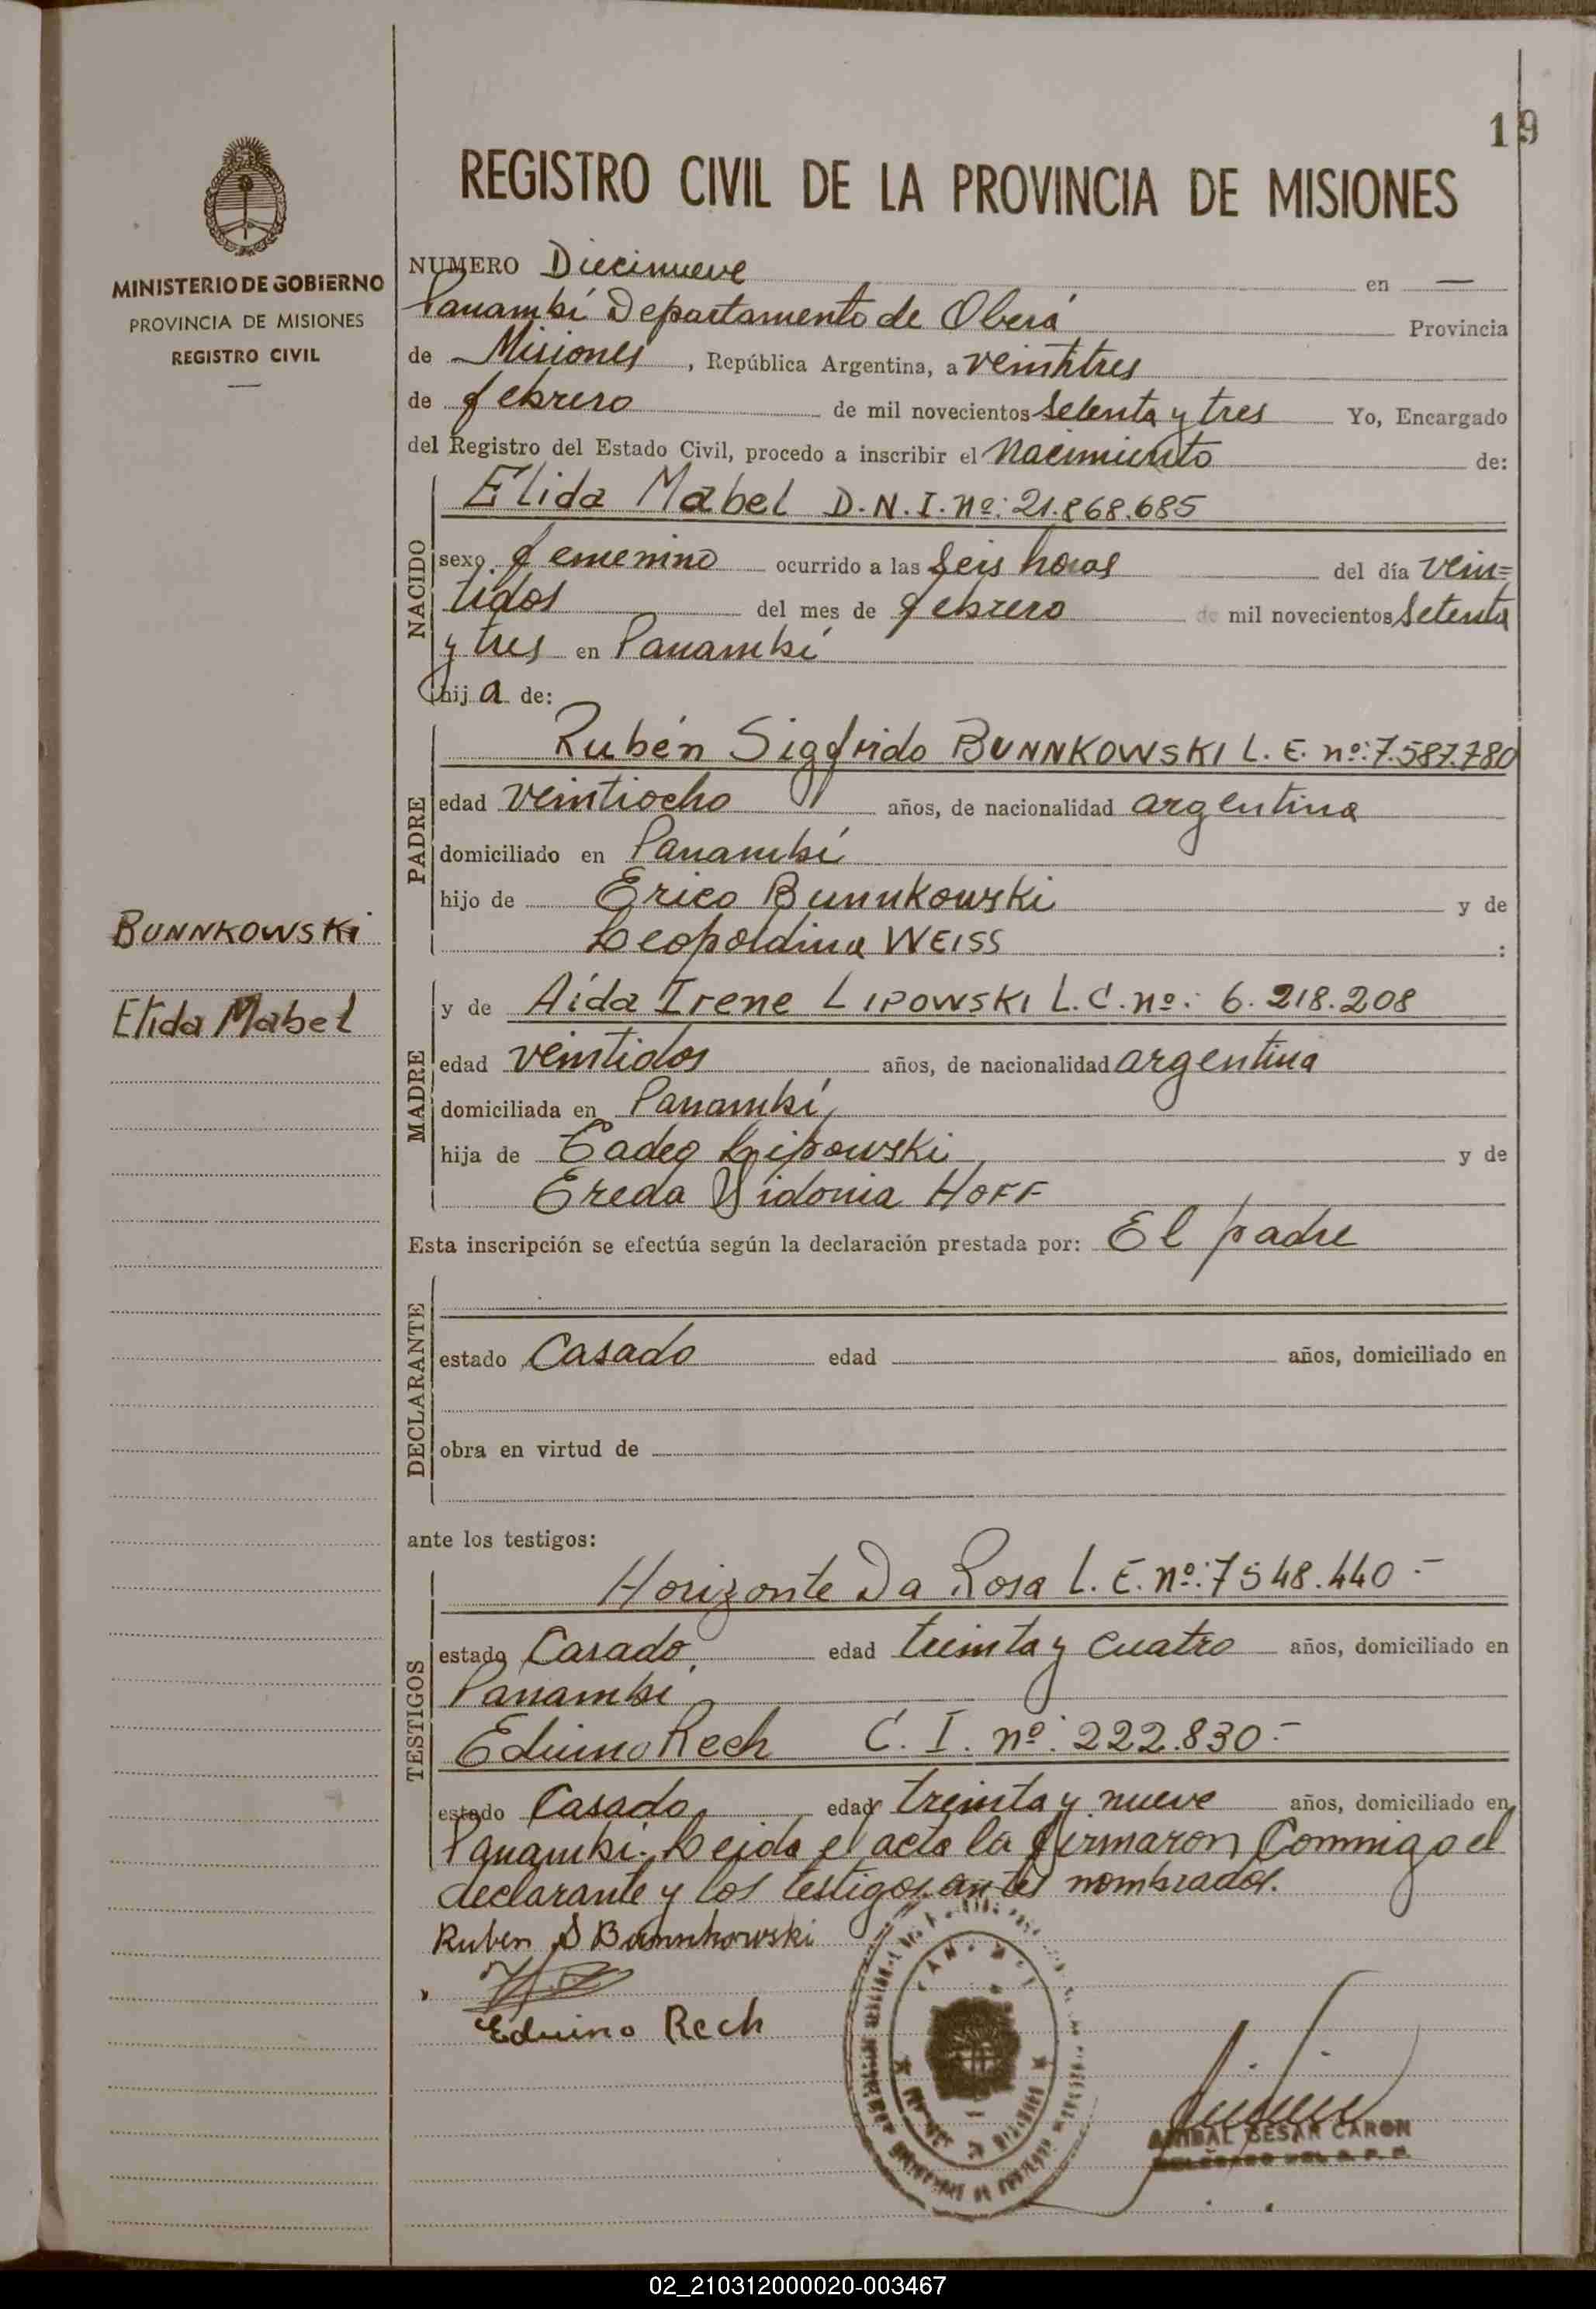 19
REGISTRO CIVIL DE LA PROVINCIA DE MISIONES
MINISTERIO DE GOBIERNO
PROVINCIA DE MISIONES
REGISTRO CIVIL
NUMERO Diecinueve en —
Panambí Departamento de Oberá Provincia
de Misiones, República Argentina, a veintitres
de febrero de mil novecientos setenta y tres Yo, Encargado
del Registro del Estado Civil, procedo a inscribir el nacimiento de:
NACIDO
Elida Mabel D.N.I. nº: 21.868.685
sexo femenino ocurrido a las seis horas del día vein=
tidos del mes de febrero de mil novecientos setenta
y tres en Panambí
hij a de:
PADRE
Rubén Sigfrido BUNNKOWSKI L.E. nº: 7.587.780
edad veintiocho años, de nacionalidad argentina
domiciliado en Panambí
hijo de Erico Bunnkowski y de
Leopoldina WEISS :
BUNNKOWSKi
Elida Mabel
MADRE
y de Aída Irene LIPOWSKI L.C. nº: 6.218.208
edad veintidos años, de nacionalidad argentina
domiciliada en Panambí
hija de Lipowski y de
Sidonia HOFF
Esta inscripción se efectúa según la declaración prestada por: El padre
DECLARANTE
estado Casado edad años, domiciliado en
obra en virtud de
ante los testigos:
TESTIGOS
Horizonte Da Rosa L.E. nº: 7548.440.-
estado Casado edad treinta y cuatro años, domiciliado en
Panambí
Eduino Rech C.I. nº: 222.830.-
estado Casado edad treinta y nueve años, domiciliado en
Panambí. Leida el acta la firmaron Conmigo el
declarante y los testigos antes nombrados.
Ruben S Bunnkowski
Eduino Rech
ANIBAL CESAR CARON
02_210312000020-003467